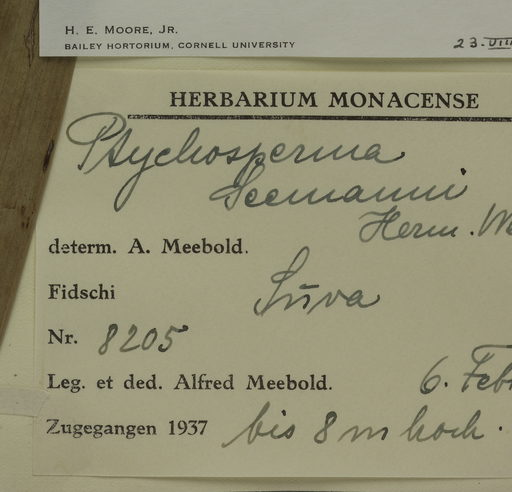 H. E. MOORE, JR.
BAILEY HORTORIUM, CORNELL UNIVERSITY 23·VIII
HERBARIUM MONACENSE
Ptychosperma
Seemanni
Herm. We
determ. A. Meebold.
Fidschi Suva
Nr. 8205
Leg. et ded. Alfred Meebold. 6. Feb
Zugegangen 1937 bis 8 m hoch.